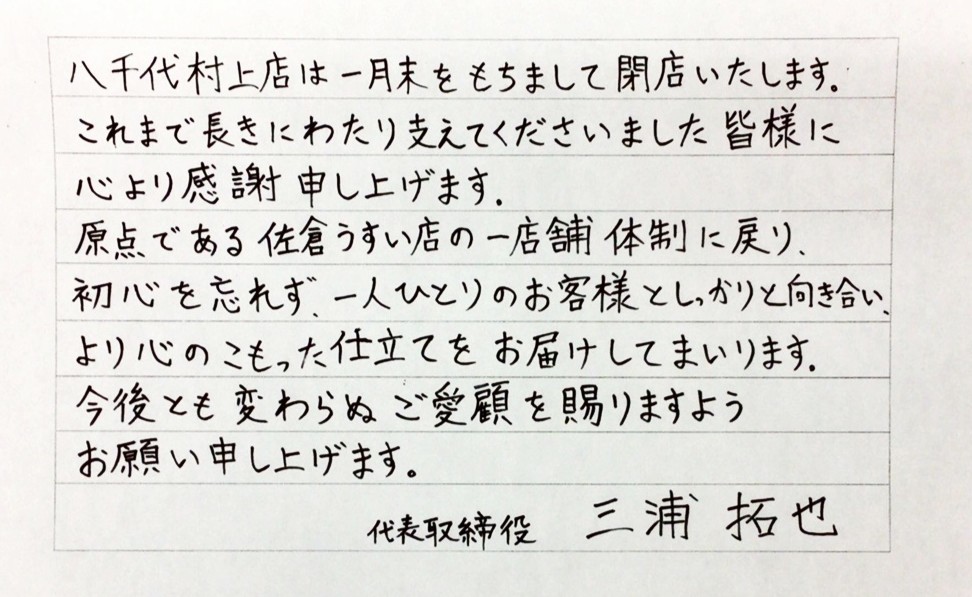 八千代村上店は一月末をもちまして閉店いたします。
これまで長きにわたり支えてくださいました皆様に
心より感謝申し上げます。
原点である佐倉うすい店の一店舗体制に戻り、
初心を忘れず、一人ひとりのお客様としっかりと向き合い、
より心のこもった仕立てをお届けしてまいります。
今後とも変わらぬご愛顧を賜りますよう
お願い申し上げます。
代表取締役 三浦 拓也